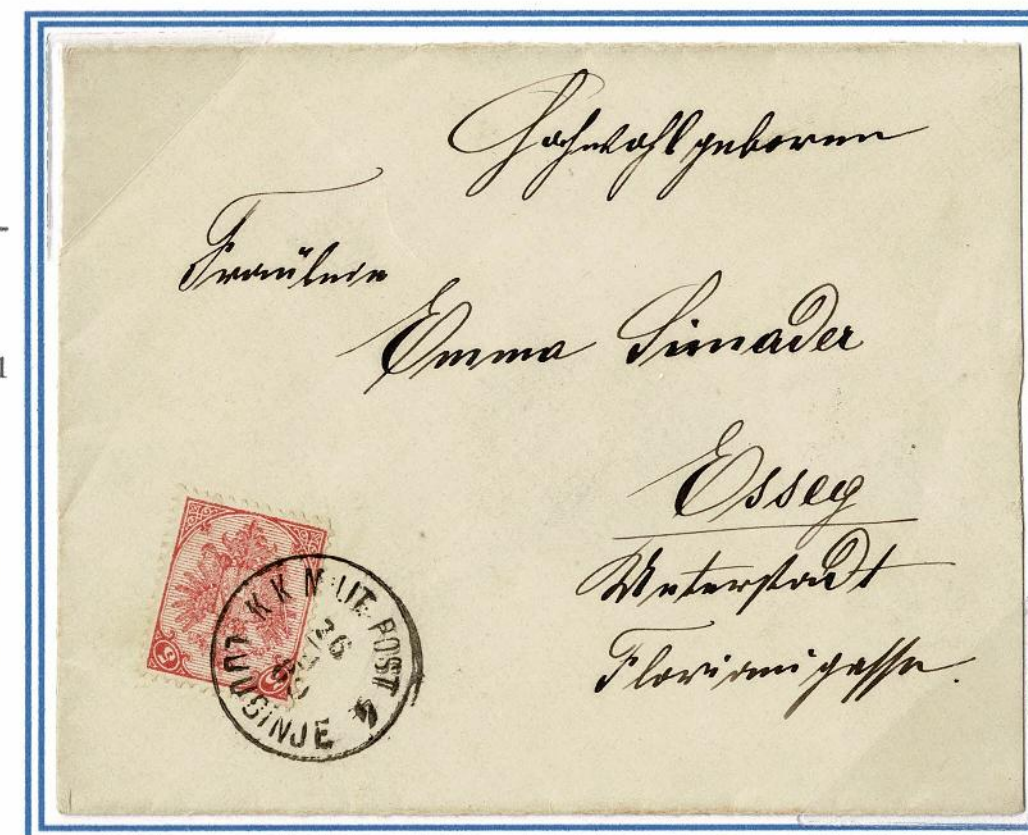 Hochwohlgeboren
Fräulein
Emma Simader
Esseg
Unterstadt
Florianigasse.
5
5
K K MILIT. POST 4
LJUBINJE
26
1